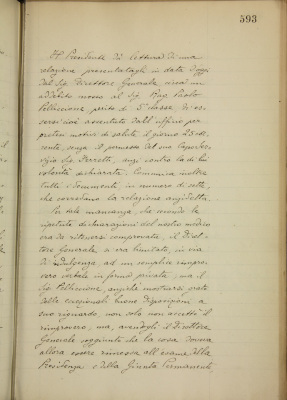 593
Il Presidente dà lettura di una
relazione presentatagli in data d'oggi
dal Sig. Direttore Generale circa un
addebito mosso al Sig. Rag. Paolo
Pelliccione, perito di 5ª classe, di es-
sersi cioè assentato dall'ufficio per
pretesi motivi di salute il giorno 25 cor-
rente, senza il permesso del suo Capo Ser-
vizio Sig. Ferretti, anzi contro la di lui
volontà dichiarata. Comunica inoltre
tutti i documenti in numero di sette,
che corredano la relazione anzidetta.
Per tale mancanza, che secondo le
ripetute dichiarazioni del nostro medico
era da ritenersi comprovata, il Diret-
tore Generale, si era limitato, in via
di indulgenza, ad un semplice rimpro-
vero verbale in forma privata, ma il
Sig. Pelliccione, anziché mostrarsi grato
delle eccezionali buone disposizioni a
suo riguardo, non solo non accettò il
rimprovero, ma, avendogli il Direttore
Generale soggiunto che la cosa doveva
allora essere rimessa all'esame della
Presidenza e della Giunta Permanente,